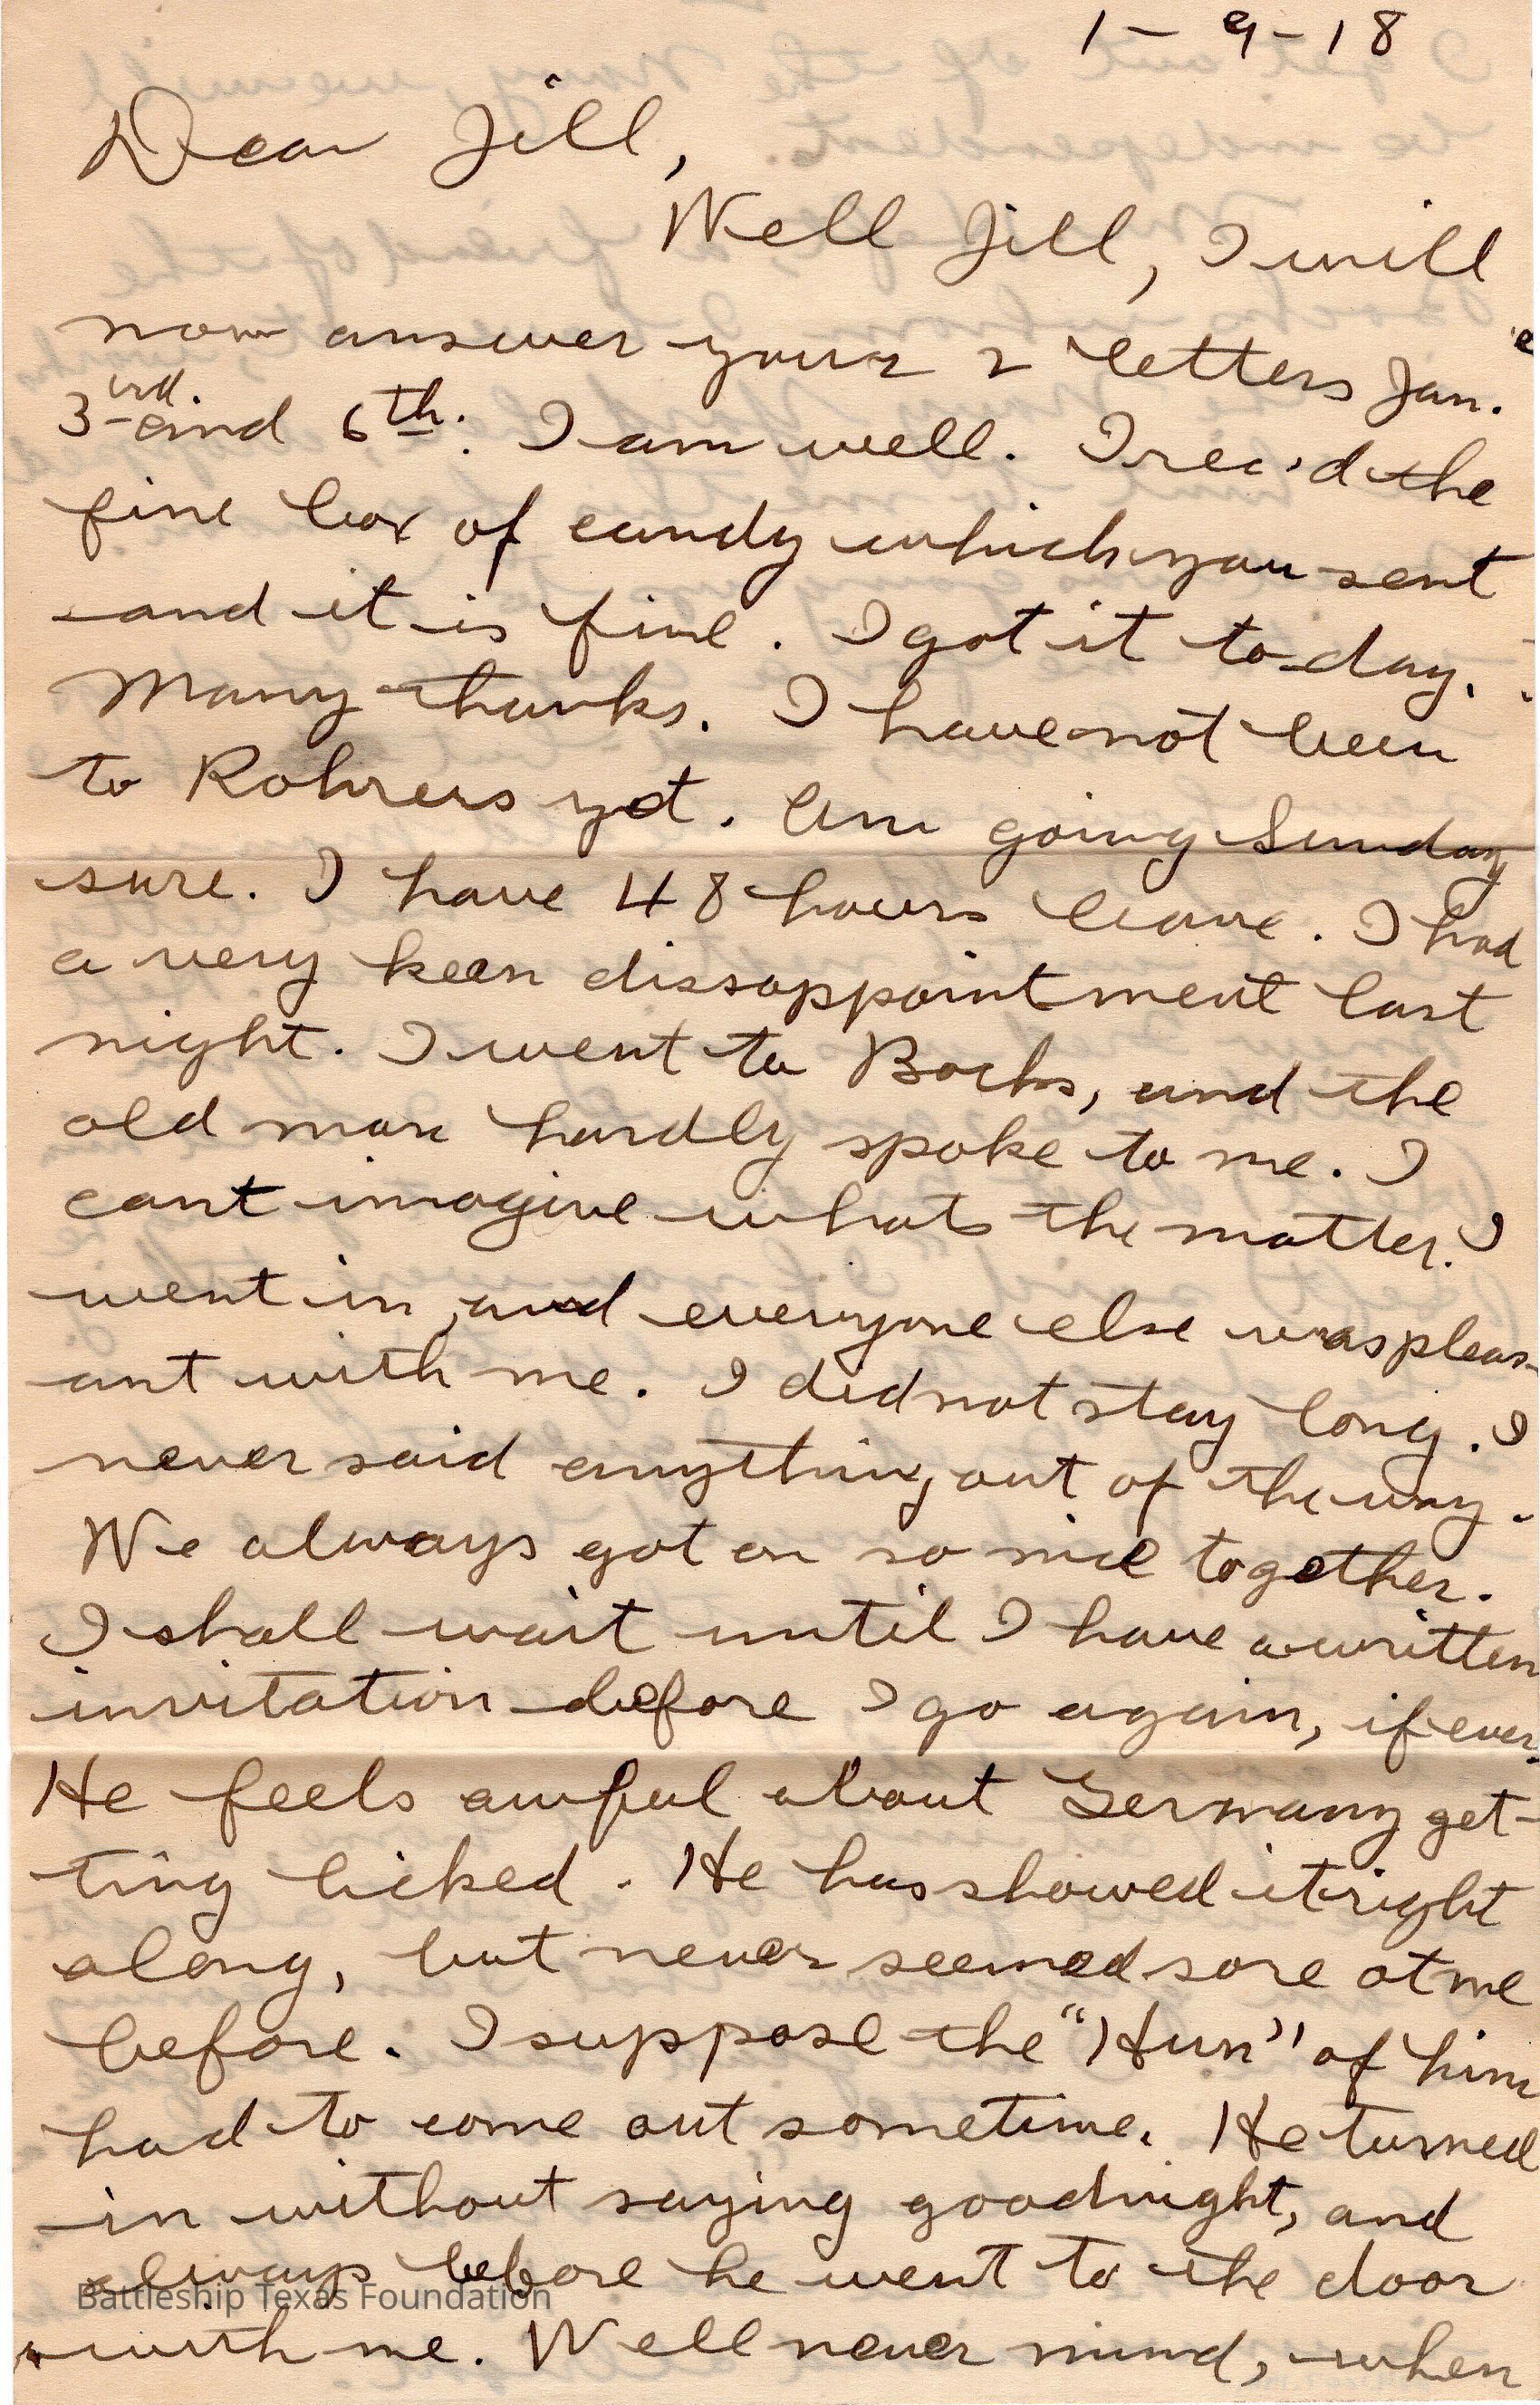 1-9-18
Dear Jill,
Well Jill, I will
now answer your 2 letters Jan.
3rd. and 6th. I am well. I rec'd the
fine box of candy which you sent
and it is fine. I got it to-day.
Many thanks. I have not been
to Rohrers yet. Am going Sunday
sure. I have 48 hours leave. I had
a very keen dissappointment last
night. I went to Bochs, and the
old man hardly spoke to me. I
cant imagine whats the matter. I
went in, and everyone else was pleas-
ant with me. I did not stay long. I
never said anything out of the way.
We always got on so nice together.
I shall wait until I have a written
invitation before I go again, if ever.
He feels awful about Germany get-
ting licked. He has showed it right
along, but never seemed sore at me
before. I suppose the "Hun" of him
had to come out sometime. He turned
in without saying goodnight, and
always before he went to the door
with me. Well never mind, when
Battleship Texas Foundation